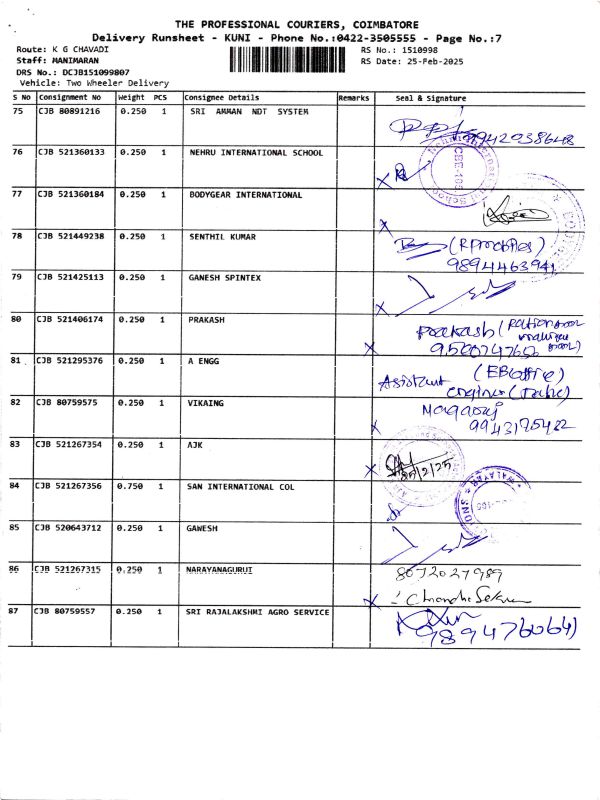 THE PROFESSIONAL COURIERS, COIMBATORE
Delivery Runsheet - KUNI - Phone No.:0422-3505555 - Page No.:7
Route: K G CHAVADI RS No.: 1510998
Staff: MANIMARAN RS Date: 25-Feb-2025
DRS No.: DCJB151099807
Vehicle: Two Wheeler Delivery
S No Consignment No Weight PCS Consignee Details Remarks Seal & Signature
75 CJB 80891216 0.250 1 SRI AMMAN NDT SYSTEM
9942038648
76 CJB 521360133 0.250 1 NEHRU INTERNATIONAL SCHOOL
77 CJB 521360184 0.250 1 BODYGEAR INTERNATIONAL
78 CJB 521449238 0.250 1 SENTHIL KUMAR
9894463941
79 CJB 521425113 0.250 1 GANESH SPINTEX
80 CJB 521406174 0.250 1 PRAKASH
Prakash
81 CJB 521295376 0.250 1 A ENGG
(EB office)
Assistant
82 CJB 80759575 0.250 1 VIKAING
83 CJB 521267354 0.250 1 AJK
25/2/25
84 CJB 521267356 0.750 1 SAN INTERNATIONAL COL
WALAYAR
85 CJB 520643712 0.250 1 GAWESH
86 CJB 521267315 0.250 1 NARAYANAGURUT
8072027989
87 CJB 80759557 0.250 1 SRI RAJALAKSHMI AGRO SERVICE